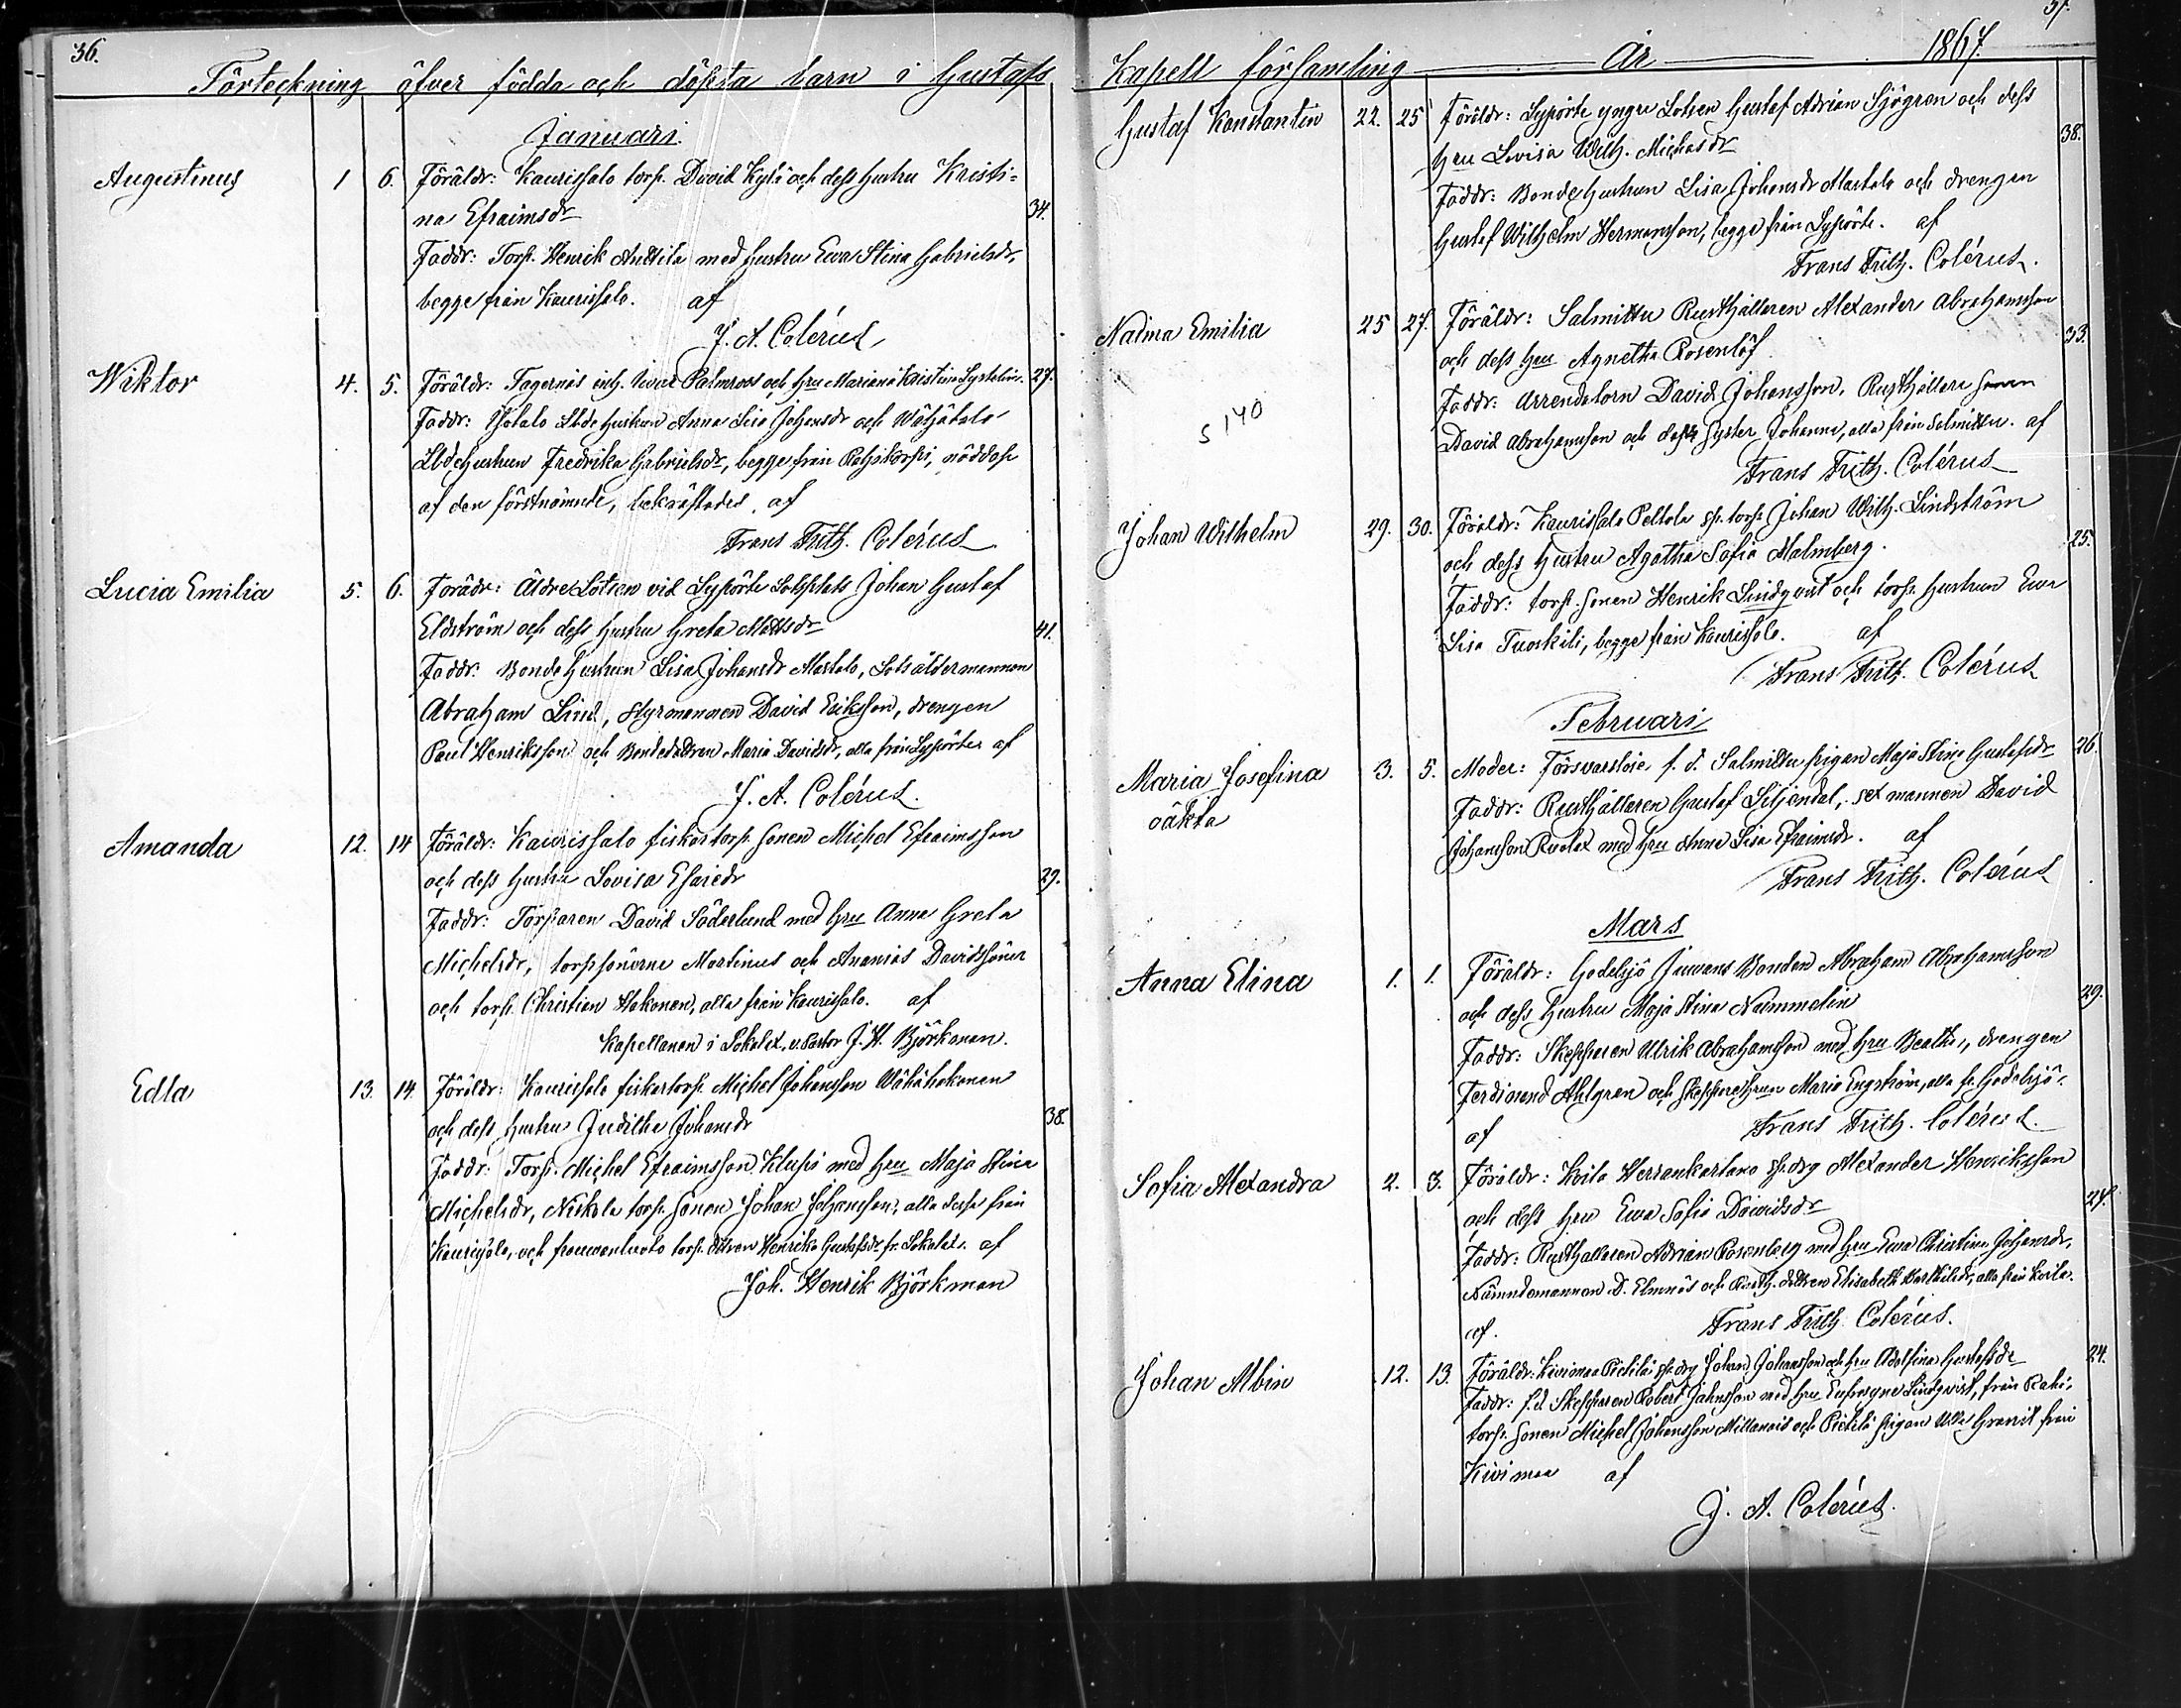 36.
Förteckning öfver födda och döpta barn i Gustafs
Januari.
Augustinus 1 6. Föräldr: Kaurissalo torp. David Kylä och dess hustru Kristi=
na Efraimsdr 34.
Faddr: Torp. Henrik Anttila med hustru Ewa Stina Gabrielsdr,
begge från Kaurissalo. af
J. A. Colérus
Wiktor 4. 5. Föräldr: Tagernäs inh. Palmroos och hru Maria Kristina 27.
Faddr: Isotalo Lbde hustrun Anna Lisa Johansdr och Wähätalo
Lbdehustrun Fredrika Gabrielsdr, begge från nöddop
af den förstnämnde, bekräftades af
Frans Frith. Colérus
Lucia Emilia 5. 6. Förädr: Äldre Lotsen vid Lypörtö Lotsplats Johan Gustaf
Eldström och dess hustru Greta Mattsdr 41.
Faddr: Bonde hustrun Lisa Johansdr Mastalo, Lotsåldermannen
Abraham Lind, styrmannen David Eriksson, drengen
Paul Henriksson och Bondedottren Maria Davidsdr, alla från Lypörtö af
J. A. Colérus.
Amanda 12. 14 Föräldr: Kaurissalo fiskartorp. sonen Michel Efraimsson
och dess hustru Lovisa Esaiedr 29.
Faddr: Torparen David Söderlund med hru Anna Greta
Michelsdr, torpsönerne Martinus och Ananias Davidssöner
och torp. Christian Hakonen, alla från Kaurissalo. af
Kapellanen i Lokalax, v. Pastor J. H. Björkman.
Edla 13. 14. Föräldr: Kaurissalo fiskartorp. Michel Johansson Wähähakonen
och dess hustru Juditha Johansdr 38.
Faddr: Torp. Michel Efraimsson Klupi med hru Maja Stina
Michelsdr, Niskala torp. sonen Johan Johansson, alla dessa från
Kaurisalo, och torp. dottren Henrika Gustafsdr fr. Lokalax. af
Joh. Henrik Björkman
37.
Kapell församling År 1867.
Gustaf Konstantin 22. 25 Föräldr: Lypörtö yngre Lotsen Gustaf Adrian Sjögren och dess
hru Lovisa Wilh. Michelsdr 38.
Faddr: Bondehustrun Lisa Johansdr Mastalo och drengen
Gustaf Wilhelm Hermansson, begge från Lypörtö. af
Frans Frith. Colérus.
Naima Emilia 25 27. Föräldr: Salmittu Rusthållaren Alexander Abrahamsson
och dess hru Agnetha Rosenlöf 33.
Faddr: Arrendatorn David Johansson, Rusthållare sonen
David Abrahamsson och dess syster Johanna, alla från Salmittu. af
Frans Frith. Colérus
s 140
Johan Wilhelm 29. 30. Föräldr: Kaurissalo Peltola sp. torp. Johan Wilh. Lindström
och dess hustru Agatha Sofia Malmberg. 25.
Faddr: torp. sonen Henrik Lindqvist och torp. hustrun Ewa
Lisa Tuoskili, begge från Kaurissalo. af
Frans Frith. Colérus
Februari
Maria Josefina 3. 5. Moder: Försvarslöse f. d. Salmittu pigan Maja Stina Gustafsdr 26.
oäkta Faddr: Rusthållaren Gustaf Liljendal, sexmannen David
Johansson med hru Anna Lisa Efraimsdr. af
Frans Frith. Colérus
Mars
Anna Elina 1. 1. Föräldr: Godelsjö Juvans Bonden Abraham Abrahamsson
och dess hustru Maja Stina Nummelin 29.
Faddr: Skepparen Ulrik Abrahamsson med hru Beatha, drengen
Ferdinand Ahlgren och Skepparehrun Maria Engström, alla fr. Godelsjö.
af Frans Frith. Colérus.
Sofia Alexandra 2. 3. Föräldr: Koila Herrankartano sp. drg Alexander Henriksson
och dess hru Ewa Sofia Davidsdr 27.
Faddr: Rusthållaren Adrian Rosenberg med hru Ewa Christina Johansdr,
Nämndemannen D. Elmnäs och Rusth. dottren Elisabeth alla från Koila.
af. Frans Frith. Colérus.
Johan Albin 12. 13. Föräldr: Kivimaa Pietilä sp. drg Johan Johansson och hru Adolfina Gustafsdr 24.
Faddr: f. d. Skepparen Robert med hru Eufrosyne Lindqvist, från
torp. sonen Michel Johansson och Pietilä pigan Ulla från
Kivimaa af
J. A. Colérus.